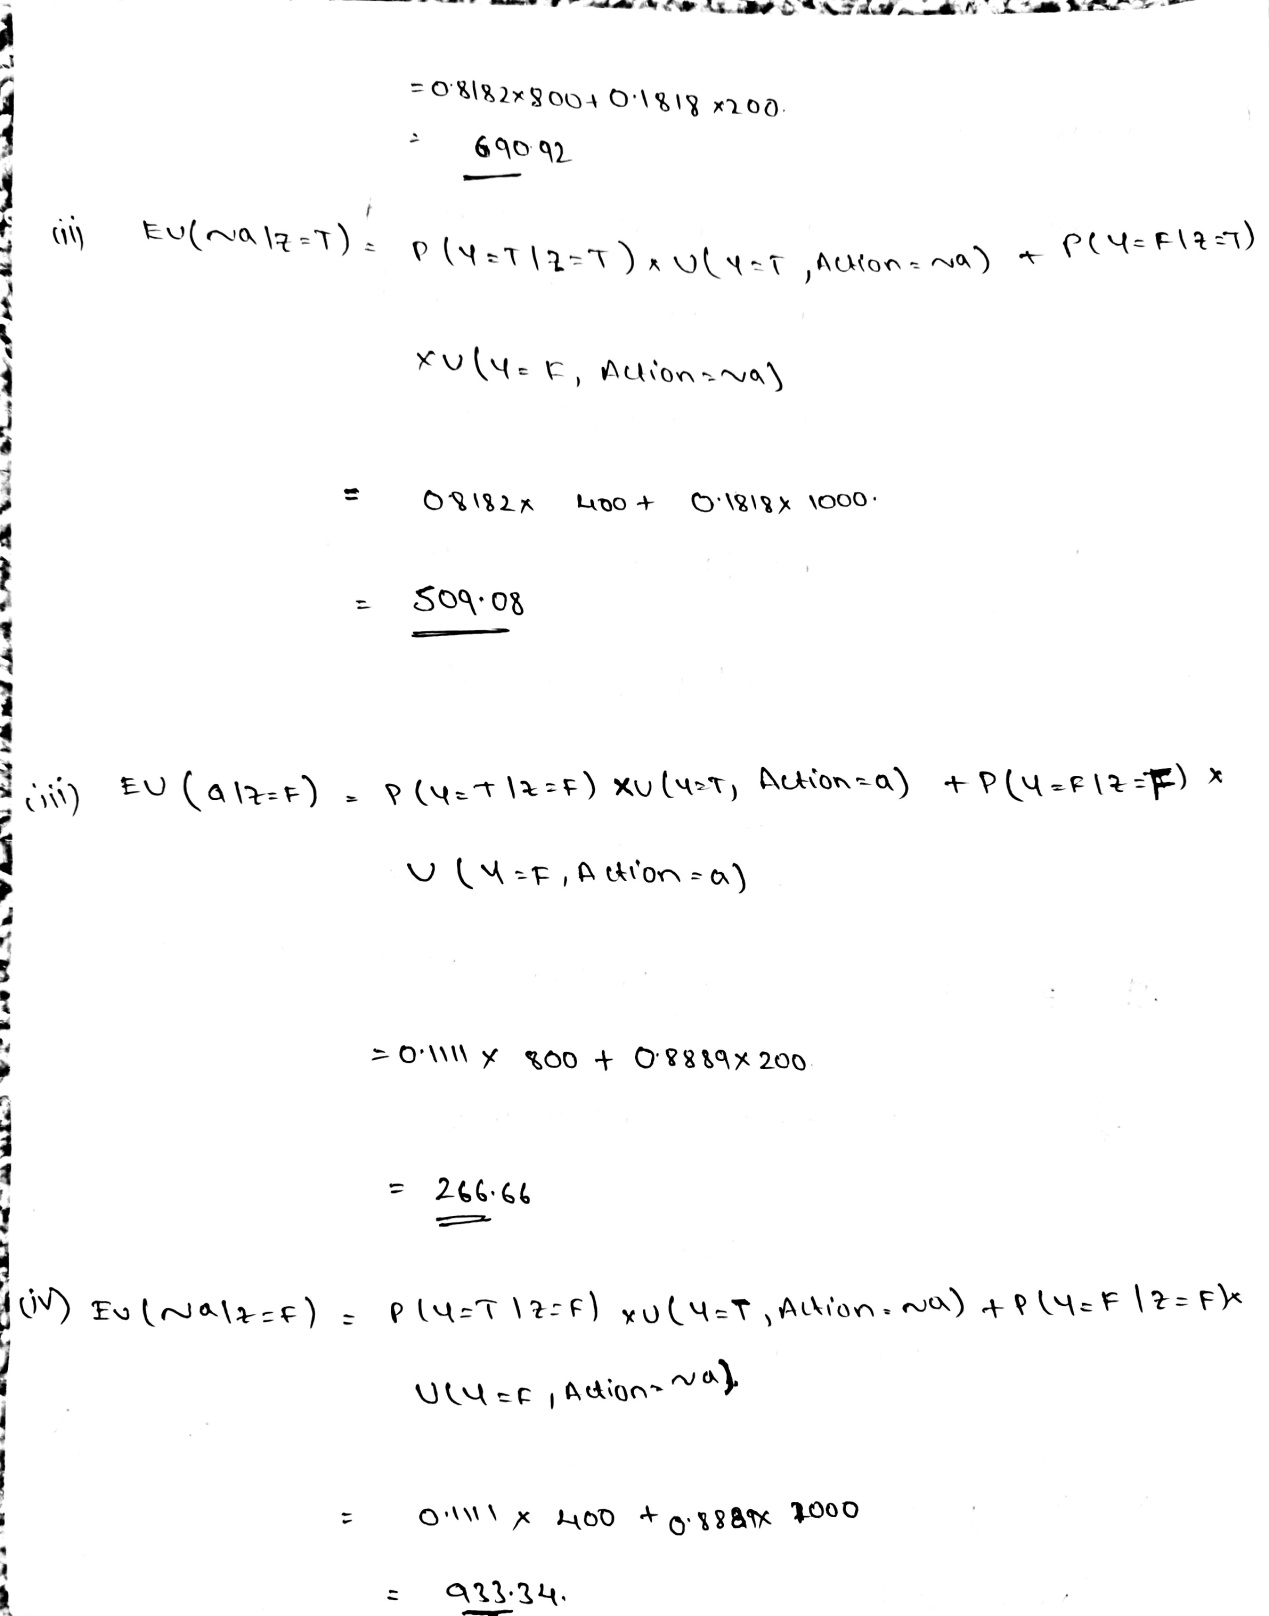 = 0.8182×800+ 0.1818 ×200.
= 690.92
(ii) EU(~a|z=T) = P(Y=T|z=T) × U(Y=T, Action=~a) + P(Y=F|z=T)
×U(Y=F, Action=~a)
= 0.8182× 400 + 0.1818× 1000.
= 509.08
(iii) EU (a|z=F) = P(Y=T|z=F) ×U(Y=T, Action=a) + P(Y=F|z=F) ×
U (Y=F, Action=a)
= 0.1111 × 800 + 0.8889×200.
= 266.66
(iv) EU(~a|z=F) = P(Y=T|z=F) ×U(Y=T, Action=~a) + P(Y=F|z=F)×
U(Y=F, Action=~a).
= 0.1111 × 400 + 0.8889× 1000
= 933.34.